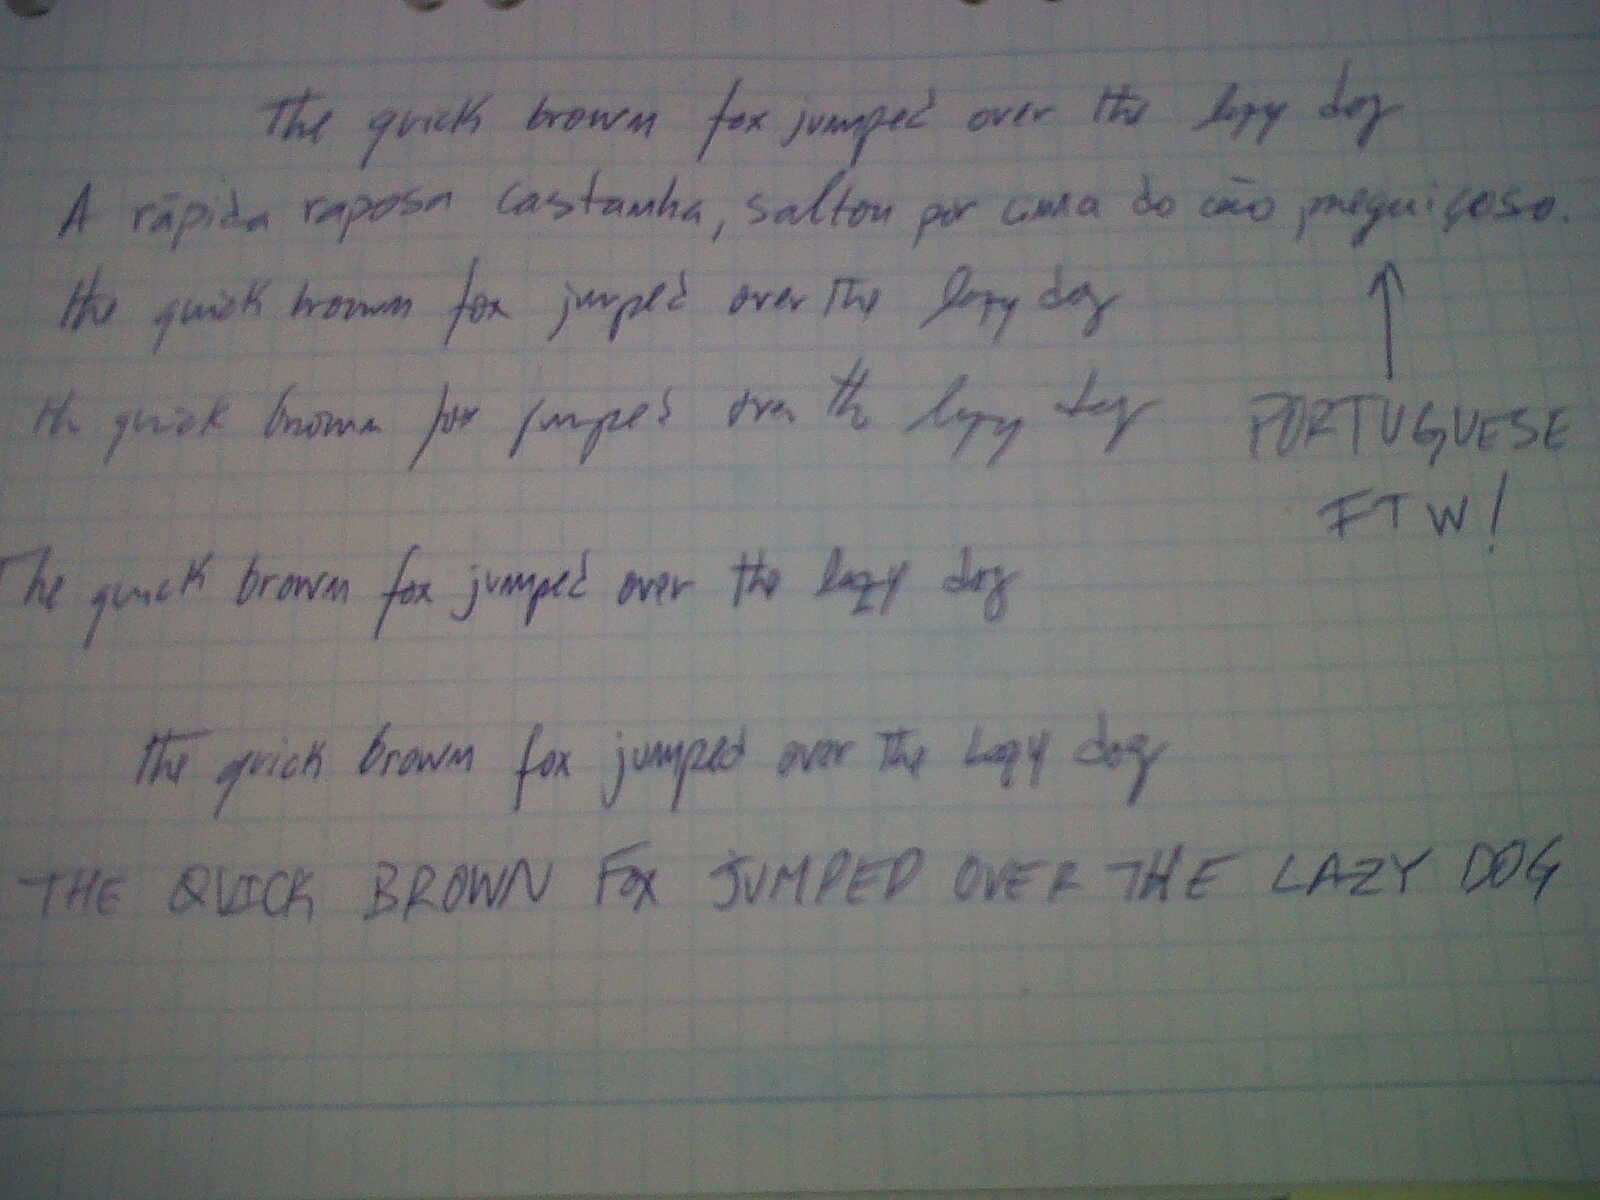 The quick brown fox jumped over the lazy dog
A rápida raposa castanha, saltou por cima do cão preguiçoso.
the quick brown fox jumped over the lazy dog
the quick brown fox jumped over the lazy dog
PORTUGUESE
FTW!
The quick brown fox jumped over the lazy dog
the quick brown fox jumped over the Lazy dog
THE QUICK BROWN FOX JUMPED OVER THE LAZY DOG